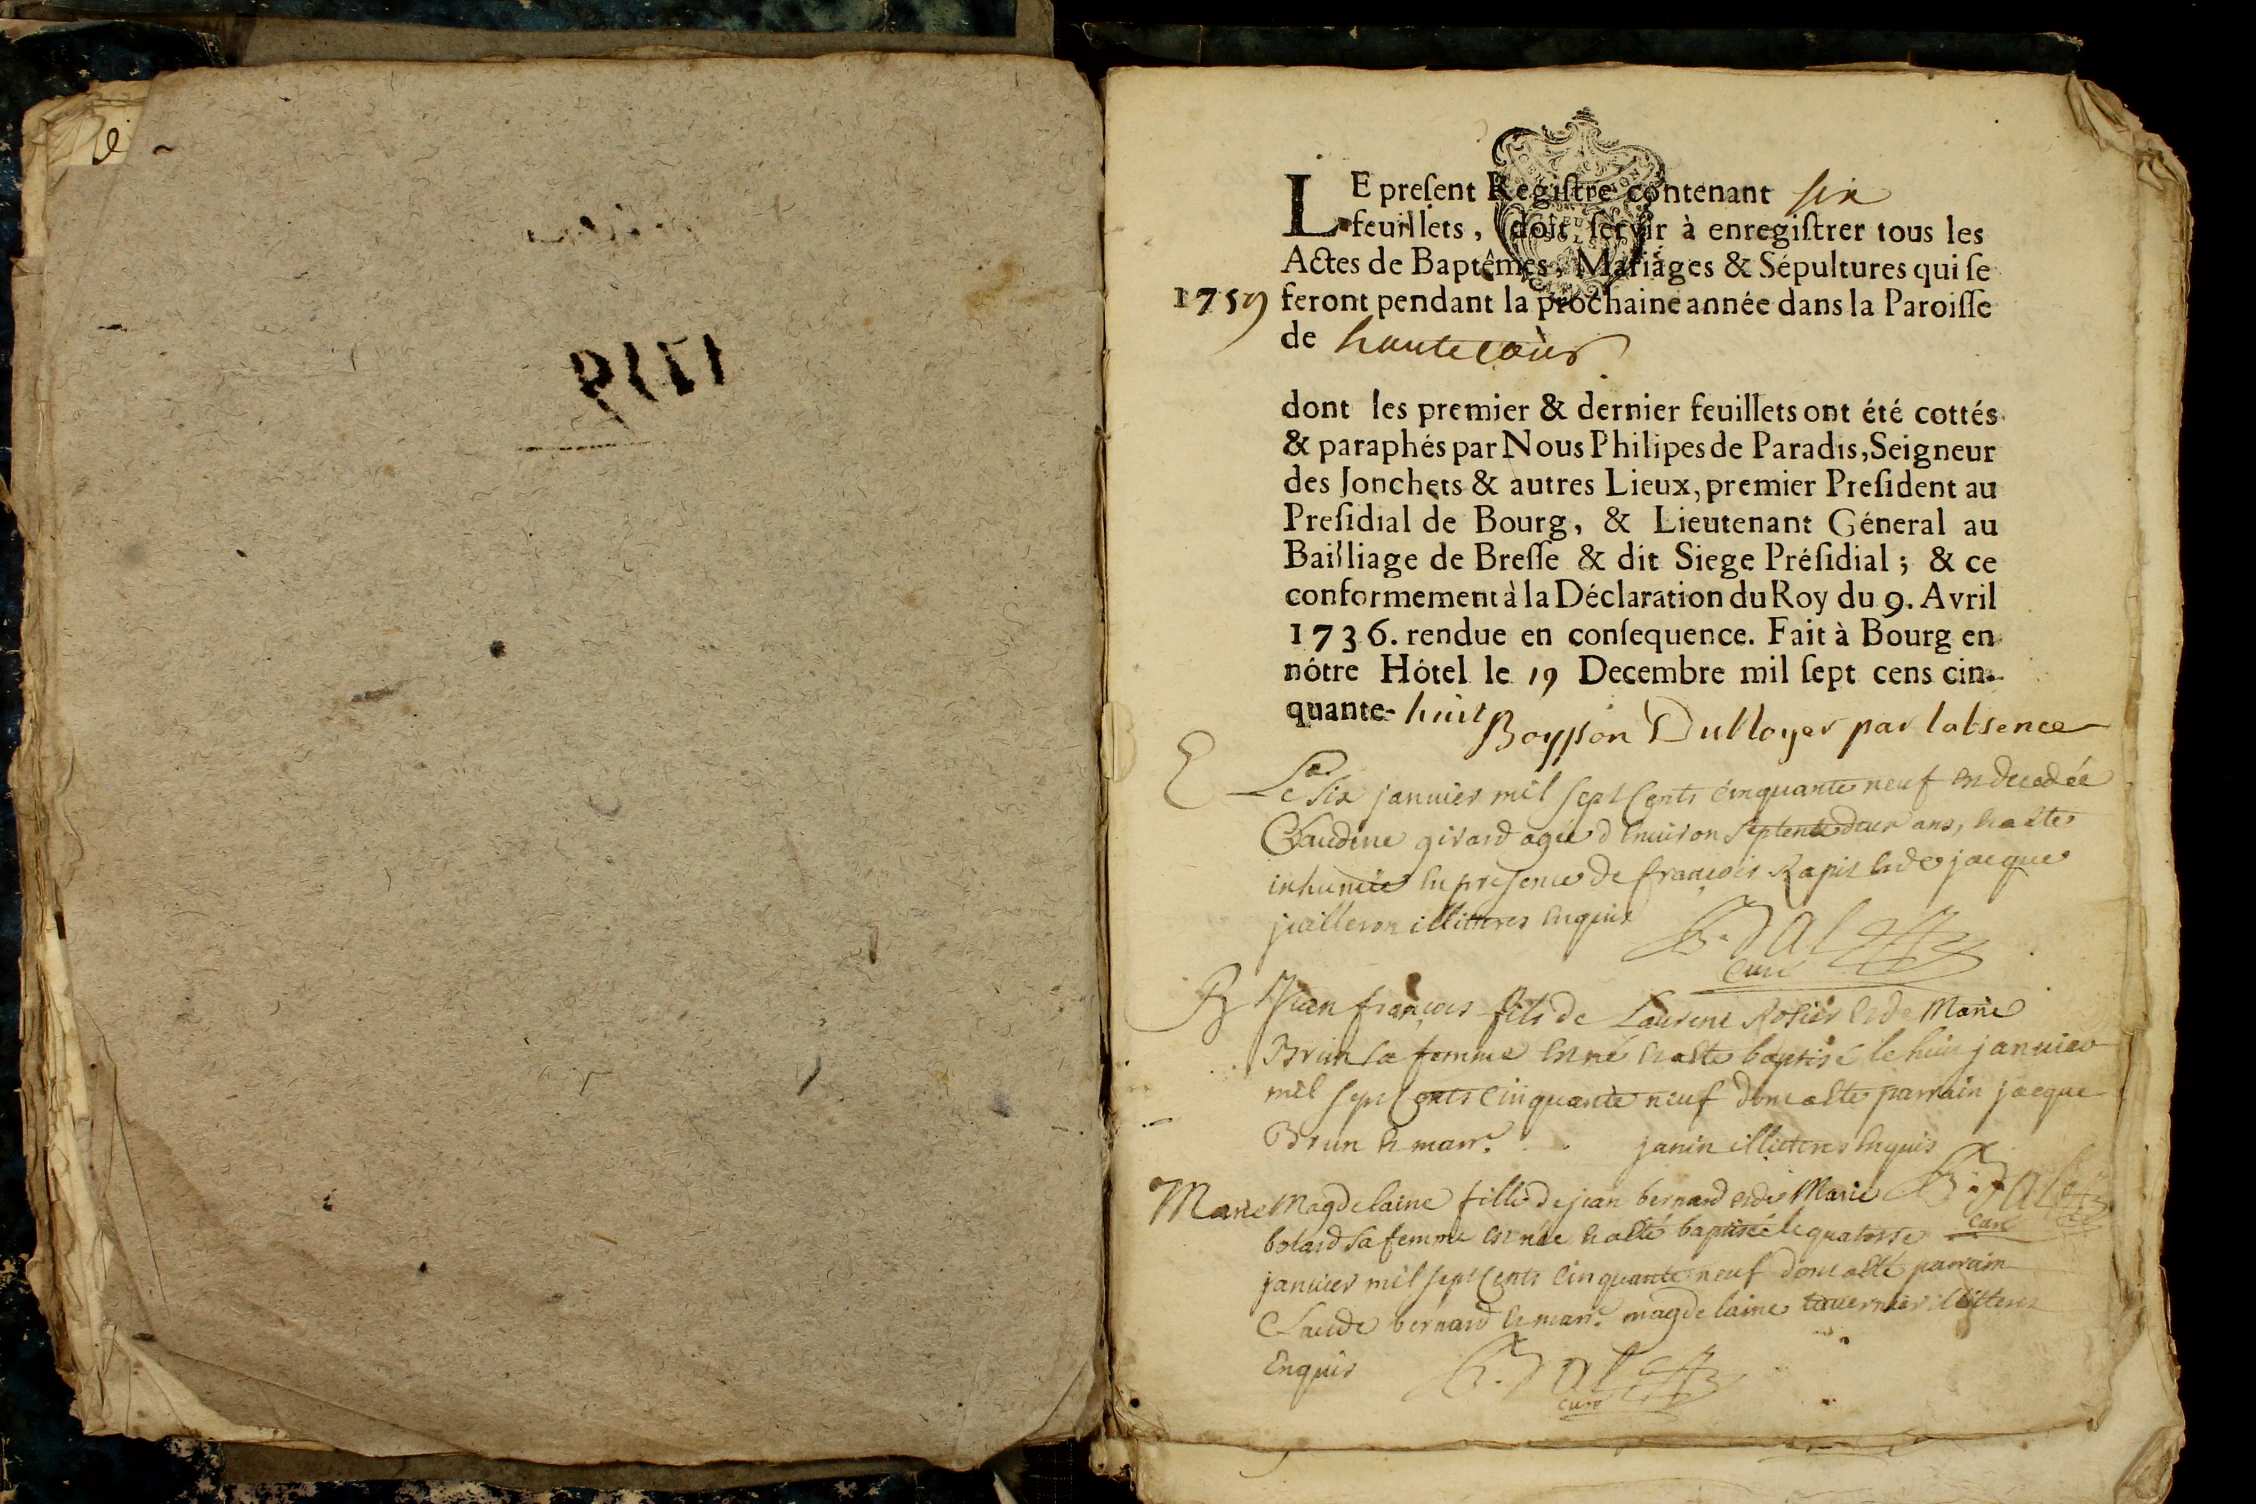 1759
LE preſent Regiſtre contenant six
feuillets, doit ſervir à enregiſtrer tous les
Actes de Baptêmes, Mariâges & Sépultures qui ſe
1759 feront pendant la prochaine année dans la Paroiſſe
de hautecour
dont les premier & dernier feuillets ont été cottés
& paraphés par Nous Philipes de Paradis, Seigneur
des Jonchets & autres Lieux, premier Preſident au
Preſidial de Bourg, & Lieutenant Géneral au
Bailliage de Breſſe & dit Siege Préſidial; & ce
conformement à la Déclaration du Roy du 9. Avril
1736. rendue en conſequence. Fait à Bourg en
nótre Hótel le 19 Decembre mil ſept cens cin-
quante-huit
par labsence
Le six janvier mil sept cents cinquante neuf est decedée
Claudine girard agée d'environ septente deux ans, et a êté
inhumée en presence de françois Rapit et de jacque
juilleron illitteres enquis
curé
B Jean françois fils de Laurent Rosier et de Marie
Brun sa femme est né et a êté baptisé le huit janvier
mil sept cents cinquante neuf dont a êté parrain jacque
Brun et marr. janin illitteres enquis
curé
Marie Magdelaine fille de jean bernard et de Marie
bolard sa femme est née et a êté baptisée le quatorse
janvier mil sept cents cinquante neuf dont a êté parrain
Claude bernard et marr. magdelaine tavernier illitteres
Enquis
curé